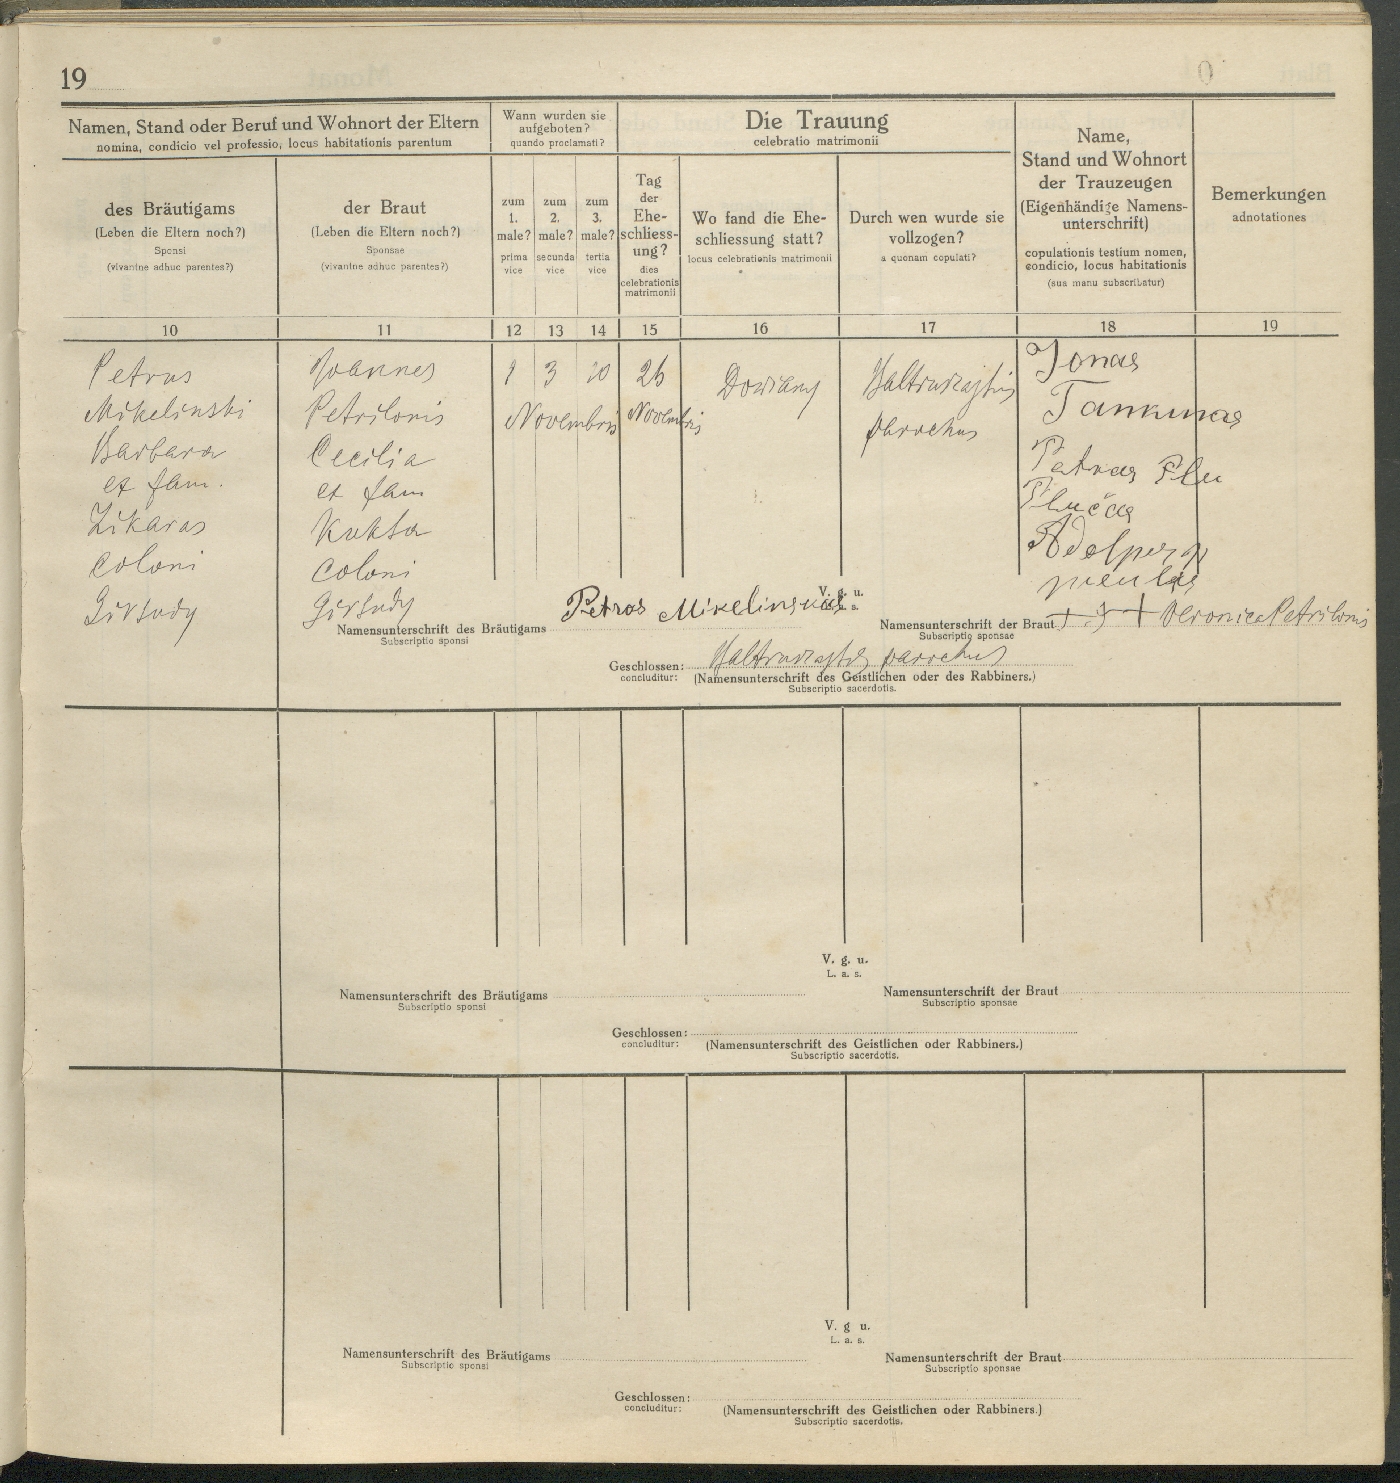 19
0
Namen, Stand oder Beruf und Wohnort der Eltern
nomina, condicio vel professio, locus habitationis parentum
des Bräutigams
(Leben die Eltern noch?)
Sponsi
(vivantne adhuc parentes?)
der Braut
(Leben die Eltern noch?)
Sponsae
(vivantne adhuc parentes?)
Wann wurden sie
aufgeboten?
quando proclamati?
zum
1.
male?
prima
vice
zum
2.
male?
secunda
vice
zum
3.
male?
tertia
vice
Die Trauung
celebratio matrimonii
Tag
der
Ehe-
schliess-
ung?
dies
celebrationis
matrimonii
Wo fand die Ehe-
schliessung statt?
locus celebrationis matrimonii
Durch wen wurde sie
vollzogen?
a quonam copulati?
Name,
Stand und Wohnort
der Trauzeugen
(Eigenhändige Namens-
unterschrift)
copulationis testium nomen,
condicio, locus habitationis
(sua manu subscribatur)
Bemerkungen
adnotationes
10 11 12 13 14 15 16 17 18 19
Petrus
Mikelinski
Barbara
et fam.
Zikaras
coloni
Girsudy
Joannes
Petrilonis
Cecilia
et fam
Kuksa
coloni
Girsudy
1 3 10
Novembris
26
Novembris
Dowiany
Baltruszajtis
parochus
Jonas
Tamkunas
Petras Plu
Plučas
V. g. u.
L. a. s.
Namensunterschrift des Bräutigams Petras Mikelinskas
Subscriptio sponsi
Namensunterschrift der Braut + + + Veronica Petrilonis
Subscriptio sponsae
Geschlossen: Baltruszajtis parochus
concluditur: (Namensunterschrift des Geistlichen oder des Rabbiners.)
Subscriptio sacerdotis.
V. g. u.
L. a. s.
Namensunterschrift des Bräutigams
Subscriptio sponsi
Namensunterschrift der Braut
Subscriptio sponsae
Geschlossen:
concluditur: (Namensunterschrift des Geistlichen oder Rabbiners.)
Subscriptio sacerdotis.
V. g u.
L. a. s.
Namensunterschrift des Bräutigams
Subscriptio sponsi
Namensunterschrift der Braut
Subscriptio sponsae
Geschlossen:
concluditur: (Namensunterschrift des Geistlichen oder Rabbiners.)
Subscriptio sacerdotis.